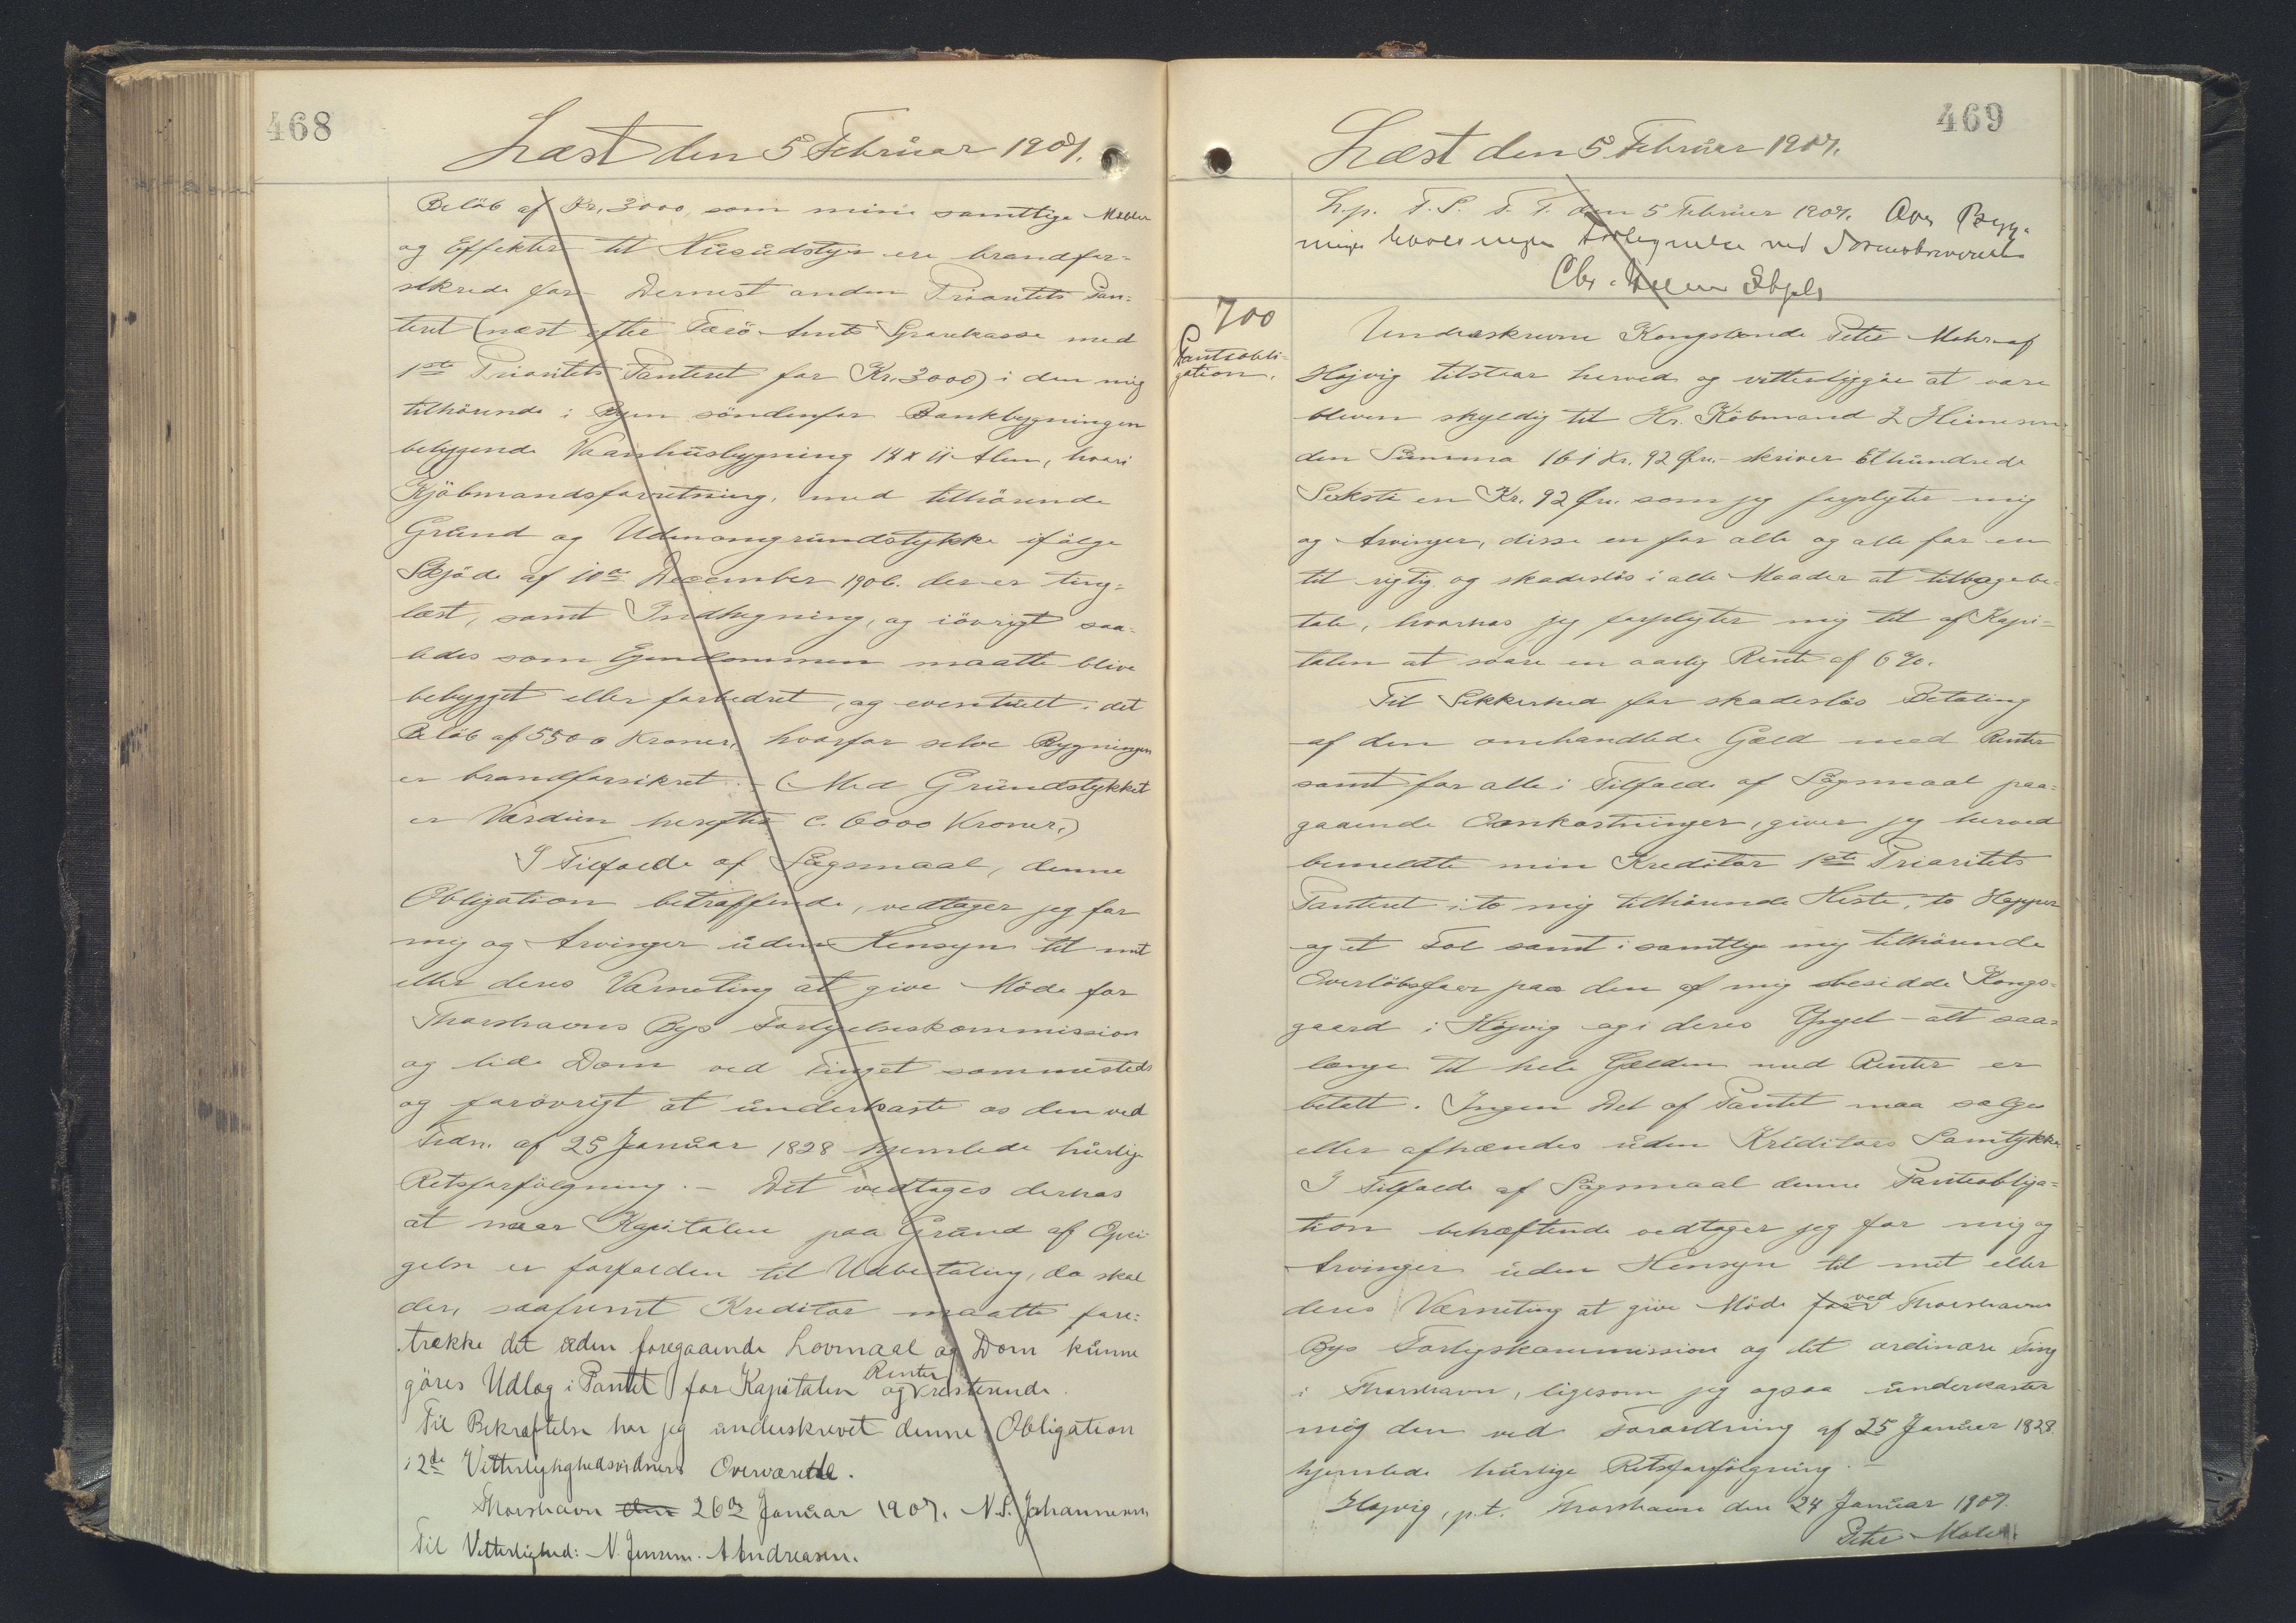 468
Læst den 5 Februar 1907.
Beløb af Kr. 3000, som mine samtlige Møbler
og Effekter til Husudstyr ere brandfor-
sikrede for. Dernæst anden Prioritets Pan-
teret (næst efter Færø Amts Sparekasse med
1ste Prioritets Panteret for Kr. 3000) i den mig
tilhørende i Byen søndenfor Bankbygningen
beliggende Vaanhusbygning 14 x 11 Alen, hvori
Kjøbmandsforretning, med tilhørende
Grund og Udenomgrundstykke ifølge
Skjøde af 10de December 1906. der er ting-
læst, samt Indhegning, og iøvrigt saa-
ledes som Ejendommen maatte blive
bebygget eller forbedret, og eventuelt i det
Beløb af 5500 Kroner, hvorfor selve Bygningen
er brandforsikret. - (Med Grundstykket
er Værdien herefter c. 6000 Kroner.)
I Tilfælde af Søgsmaal, denne
Obligation betræffende, vedtager jeg for
mig og Arvinger uden Hensyn til mit
eller deres Værneting at give Møde for
Thorshavns Bys Forligelseskommission
og lide Dom ved Tinget sammesteds
og forøvrigt at underkaste os den ved
Frdn. af 25 Januar 1828 hjemlede hurtige
Retsforfølgning. - Det vedtages derhos
at naar Kapitalen paa Grund af Opsi-
gelse er forfalden til Udbetaling, da skal
der, saafremt Kreditor maatte fore-
trække det uden foregaaende Lovmaal og Dom kunne
gøres Udlæg i Pantet for Kapitalen og resterende Renter.
Til Bekræftelse har jeg underskrevet denne Obligation
i 2de Vitterlighedsvidners Overværelse.
Thorshavn den 26de Januar 1907. N.S. Johannesen.
Til Vitterlighed: N. Jensen. A Andreasen.
469
Læst den 5 Februar 1907.
L.p. F.S. F.T. den 5 Februar 1907. Ovs Byg-
ninger haves ingen
700
Panteobli-
gation.
Underskrevne Kongsbonde Peter Mohr af
Højvig tilstaar herved og vitterliggør at være
bleven skyldig til Hr. Købmand Z Heinesen
den Summa 161 Kr. 92 Øre - skriver Ethundrede
Seksti en Kr. 92 Øre. som jeg forpligter mig
og Arvinger, disse en for alle og alle for en
til rigtig og skadesløs i alle Maader at tilbagebe-
tale, hvorhos jeg forpligter mig til af Kapi-
talen at svare en aarlig Rente af 6%.
Til Sikkerhed for skadesløs Betaling
af den omhandlede Gæld med Renter
samt for alle i Tilfælde af Søgsmaal paa-
gaaende Omkostninger, giver jeg herved
bemeldte min Kreditor 1ste Prioritets
Panteret i to mig tilhørende Heste, to Hopper
og et Føl samt i samtlige mig tilhørende
Overløbsfaar paa den af mig besidde Kongs-
gaard i Højvig og i deres Yngel - alt saa-
længe til hele Gælden med Renter er
betalt. Ingen Del af Pantet maa sælges
eller afhændes uden Kreditors Samtykke
I Tilfælde af Søgsmaal denne Panteobliga-
tion behæftende vedtager jeg for mig og
Arvinger uden Hensyn til mit eller
deres Værneting at give Møde for ved Thorshavns
Bys Forligskommission og det ordinære Ting
i Thorshavn, ligesom jeg ogsaa underkaster
mig den ved Forordning af 25 Januar 1828
hjemlede hurtige Retsforfølgning. -
Højvig, p.t. Thorshavn den 24 Januar 1907.
Peter Mohr.